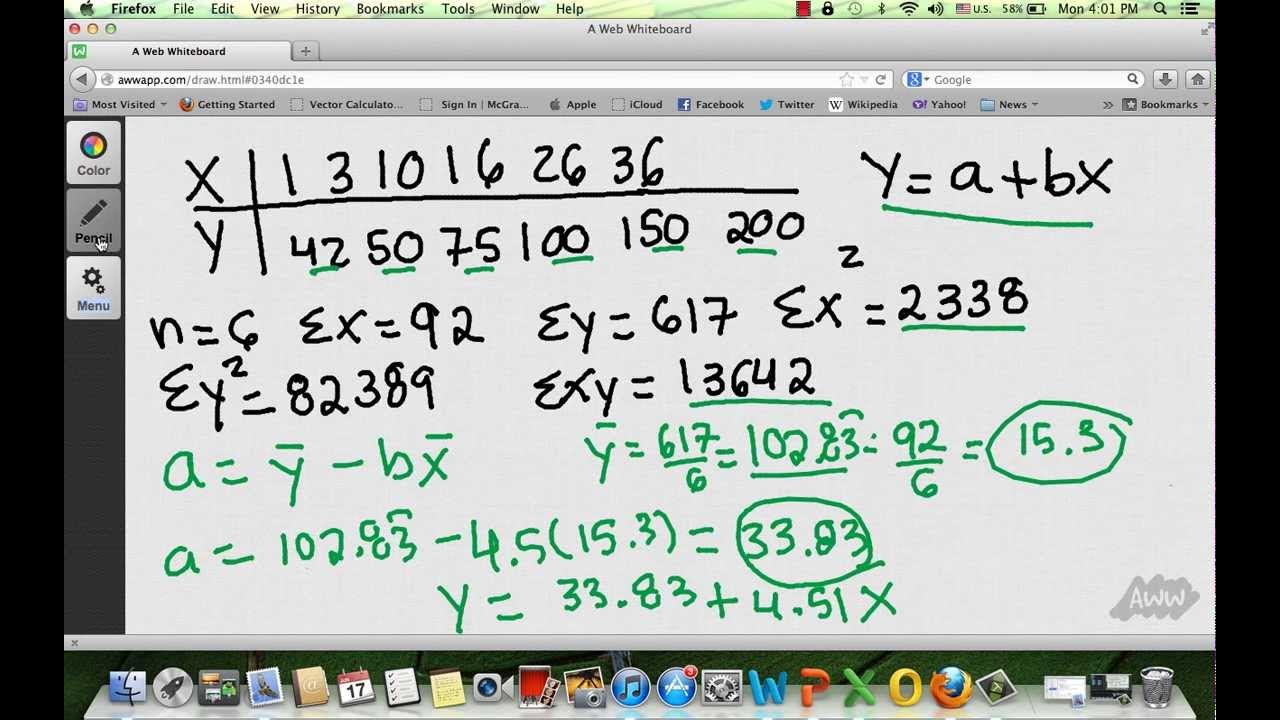 Firefox File Edit View History Bookmarks Tools Window Help U.S. 58% Mon 4:01 PM
A Web Whiteboard
A Web Whiteboard +
awwapp.com/draw.html#0340dc1e Google
Most Visited Getting Started Vector Calculato... Sign In | McGra... Apple iCloud Facebook Twitter Wikipedia Yahoo! News » Bookmarks
Color
Pencil
Menu
X | 1 3 10 16 26 36
Y | 42 50 75 100 150 200
Y = a + bx
n = 6 Σx = 92 Σy = 617 Σx² = 2338
Σy² = 82389 Σxy = 13642
a = ȳ - bx̄ ȳ = 617/6 = 102.83 = 92/6 = 15.3
a = 102.83 - 4.5(15.3) = 33.83
Y = 33.83 + 4.51X
AWW
JUN 17 3